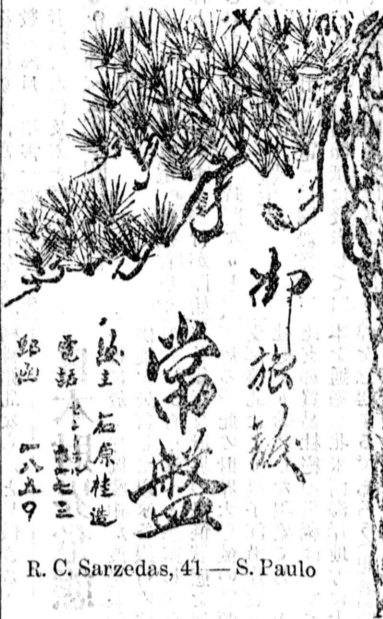 御旅舘
常盤
舘主 石原桂造
電話 セントラル 三一七三
郵函 一八五〇
R. C. Sarzedas, 41 — S. Paulo